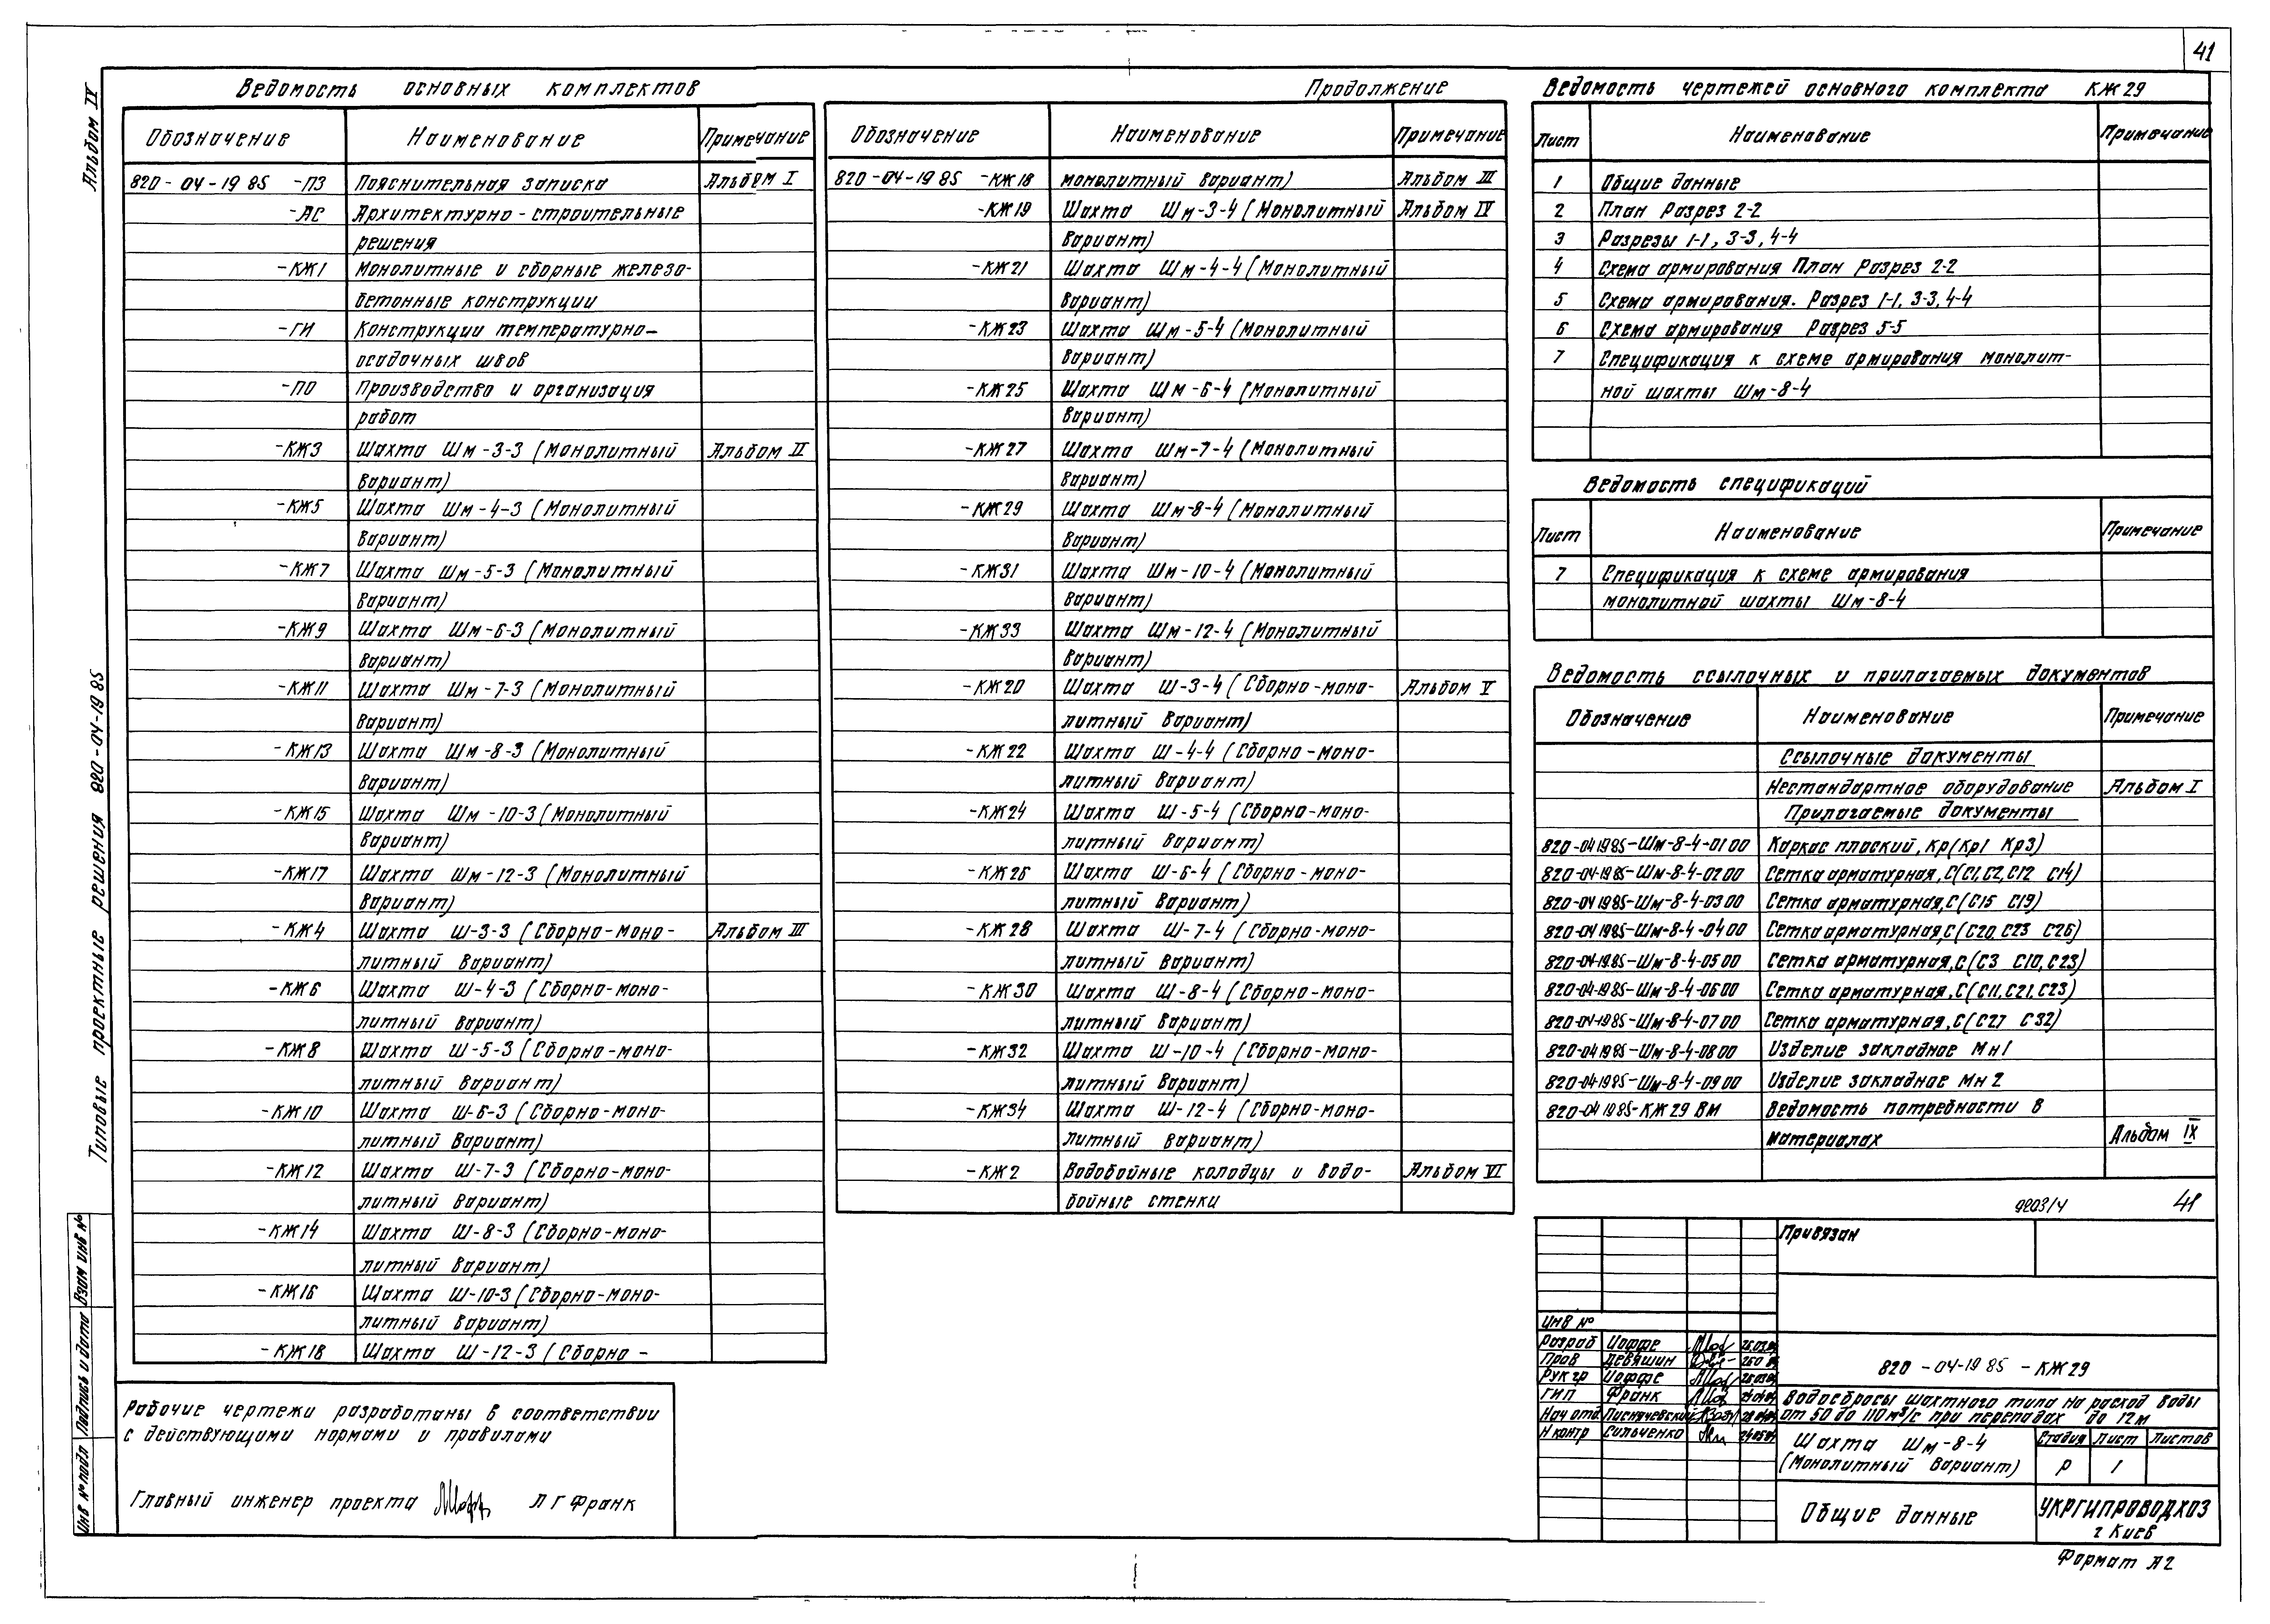 41
Альбом IV
Типовые проектные решения 820-04-19 85
Взам инв №
Подпись и дата
Инв № подл
Ведомость основных комплектов
Обозначение Наименование Примечание
820-04-19 85 -ПЗ Пояснительная записка Альбом I
-АС Архитектурно-строительные
решения
-КЖ1 Монолитные и сборные железо-
бетонные конструкции
-ГИ Конструкции температурно-
осадочных швов
-ПО Производство и организация
работ
-КЖ3 Шахта Шм-3-3 (Монолитный Альбом II
вариант)
-КЖ5 Шахта Шм-4-3 (Монолитный
вариант)
-КЖ7 Шахта Шм-5-3 (Монолитный
вариант)
-КЖ9 Шахта Шм-6-3 (Монолитный
вариант)
-КЖ11 Шахта Шм-7-3 (Монолитный
вариант)
-КЖ13 Шахта Шм-8-3 (Монолитный
вариант)
-КЖ15 Шахта Шм-10-3 (Монолитный
вариант)
-КЖ17 Шахта Шм-12-3 (Монолитный
вариант)
-КЖ4 Шахта Ш-3-3 (Сборно-моно- Альбом III
литный вариант)
-КЖ6 Шахта Ш-4-3 (Сборно-моно-
литный вариант)
-КЖ8 Шахта Ш-5-3 (Сборно-моно-
литный вариант)
-КЖ10 Шахта Ш-6-3 (Сборно-моно-
литный вариант)
-КЖ12 Шахта Ш-7-3 (Сборно-моно-
литный вариант)
-КЖ14 Шахта Ш-8-3 (Сборно-моно-
литный вариант)
-КЖ16 Шахта Ш-10-3 (Сборно-моно-
литный вариант)
-КЖ18 Шахта Ш-12-3 (Сборно-
Рабочие чертежи разработаны в соответствии
с действующими нормами и правилами
Главный инженер проекта Л Г Франк
Продолжение
Обозначение Наименование Примечание
820-04-19 85 -КЖ18 монолитный вариант) Альбом III
-КЖ19 Шахта Шм-3-4 (Монолитный Альбом IV
вариант)
-КЖ21 Шахта Шм-4-4 (Монолитный
вариант)
-КЖ23 Шахта Шм-5-4 (Монолитный
вариант)
-КЖ25 Шахта Шм-6-4 (Монолитный
вариант)
-КЖ27 Шахта Шм-7-4 (Монолитный
вариант)
-КЖ29 Шахта Шм-8-4 (Монолитный
вариант)
-КЖ31 Шахта Шм-10-4 (Монолитный
вариант)
-КЖ33 Шахта Шм-12-4 (Монолитный
вариант)
-КЖ20 Шахта Ш-3-4 (Сборно-моно- Альбом V
литный вариант)
-КЖ22 Шахта Ш-4-4 (Сборно-моно-
литный вариант)
-КЖ24 Шахта Ш-5-4 (Сборно-моно-
литный вариант)
-КЖ26 Шахта Ш-6-4 (Сборно-моно-
литный вариант)
-КЖ28 Шахта Ш-7-4 (Сборно-моно-
литный вариант)
-КЖ30 Шахта Ш-8-4 (Сборно-моно-
литный вариант)
-КЖ32 Шахта Ш-10-4 (Сборно-моно-
литный вариант)
-КЖ34 Шахта Ш-12-4 (Сборно-моно-
литный вариант)
-КЖ2 Водобойные колодцы и водо- Альбом VI
бойные стенки
Ведомость чертежей основного комплекта КЖ29
Лист Наименование Примечание
1 Общие данные
2 План Разрез 2-2
3 Разрезы 1-1, 3-3, 4-4
4 Схема армирования План Разрез 2-2
5 Схема армирования. Разрез 1-1, 3-3, 4-4
6 Схема армирования Разрез 5-5
7 Спецификация к схеме армирования монолит-
ной шахты Шм-8-4
Ведомость спецификаций
Лист Наименование Примечание
7 Спецификация к схеме армирования
монолитной шахты Шм-8-4
Ведомость ссылочных и прилагаемых документов
Обозначение Наименование Примечание
Ссылочные документы
Нестандартное оборудование Альбом I
Прилагаемые документы
820-04 19 85-Шм-8-4-01 00 Каркас плоский, Кр(Кр1 Кр3)
820-04-19 85-Шм-8-4-02 00 Сетка арматурная, С(С1, С2, С12 С14)
820-04 19 85-Шм-8-4-03 00 Сетка арматурная, С(С15 С19)
820-04 19 85-Шм-8-4-04 00 Сетка арматурная, С(С20, С23 С26)
820-04-19 85-Шм-8-4-05 00 Сетка арматурная, С(С3 С10, С23)
820-04-19 85-Шм-8-4-06 00 Сетка арматурная, С(С11, С21, С23)
820-04-19 85-Шм-8-4-07 00 Сетка арматурная, С(С27 С32)
820-04 19 85-Шм-8-4-08 00 Изделие закладное Мн1
820-04 19 85-Шм-8-4-09 00 Изделие закладное Мн2
820-04 19 85-КЖ 29 ВМ Ведомость потребности в
материалах Альбом IX
9203/4 41
Привязан
Инв №
Разраб Иоффе
Пров Девяшин
Рук гр Иоффе
ГИП Франк
Нач отд
Н контр Сильченко
820-04-19 85-КЖ29
Водосбросы шахтного типа на расход воды
от 50 до 110 м³/с при перепадах до 12м
Шахта Шм-8-4
(Монолитный вариант)
Стадия Лист Листов
Р 1
Общие данные
УКРГИПРОВОДХОЗ
г Киев
Формат А2